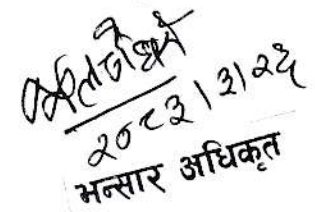 २०८३।३।२६
भन्सार अधिकृत